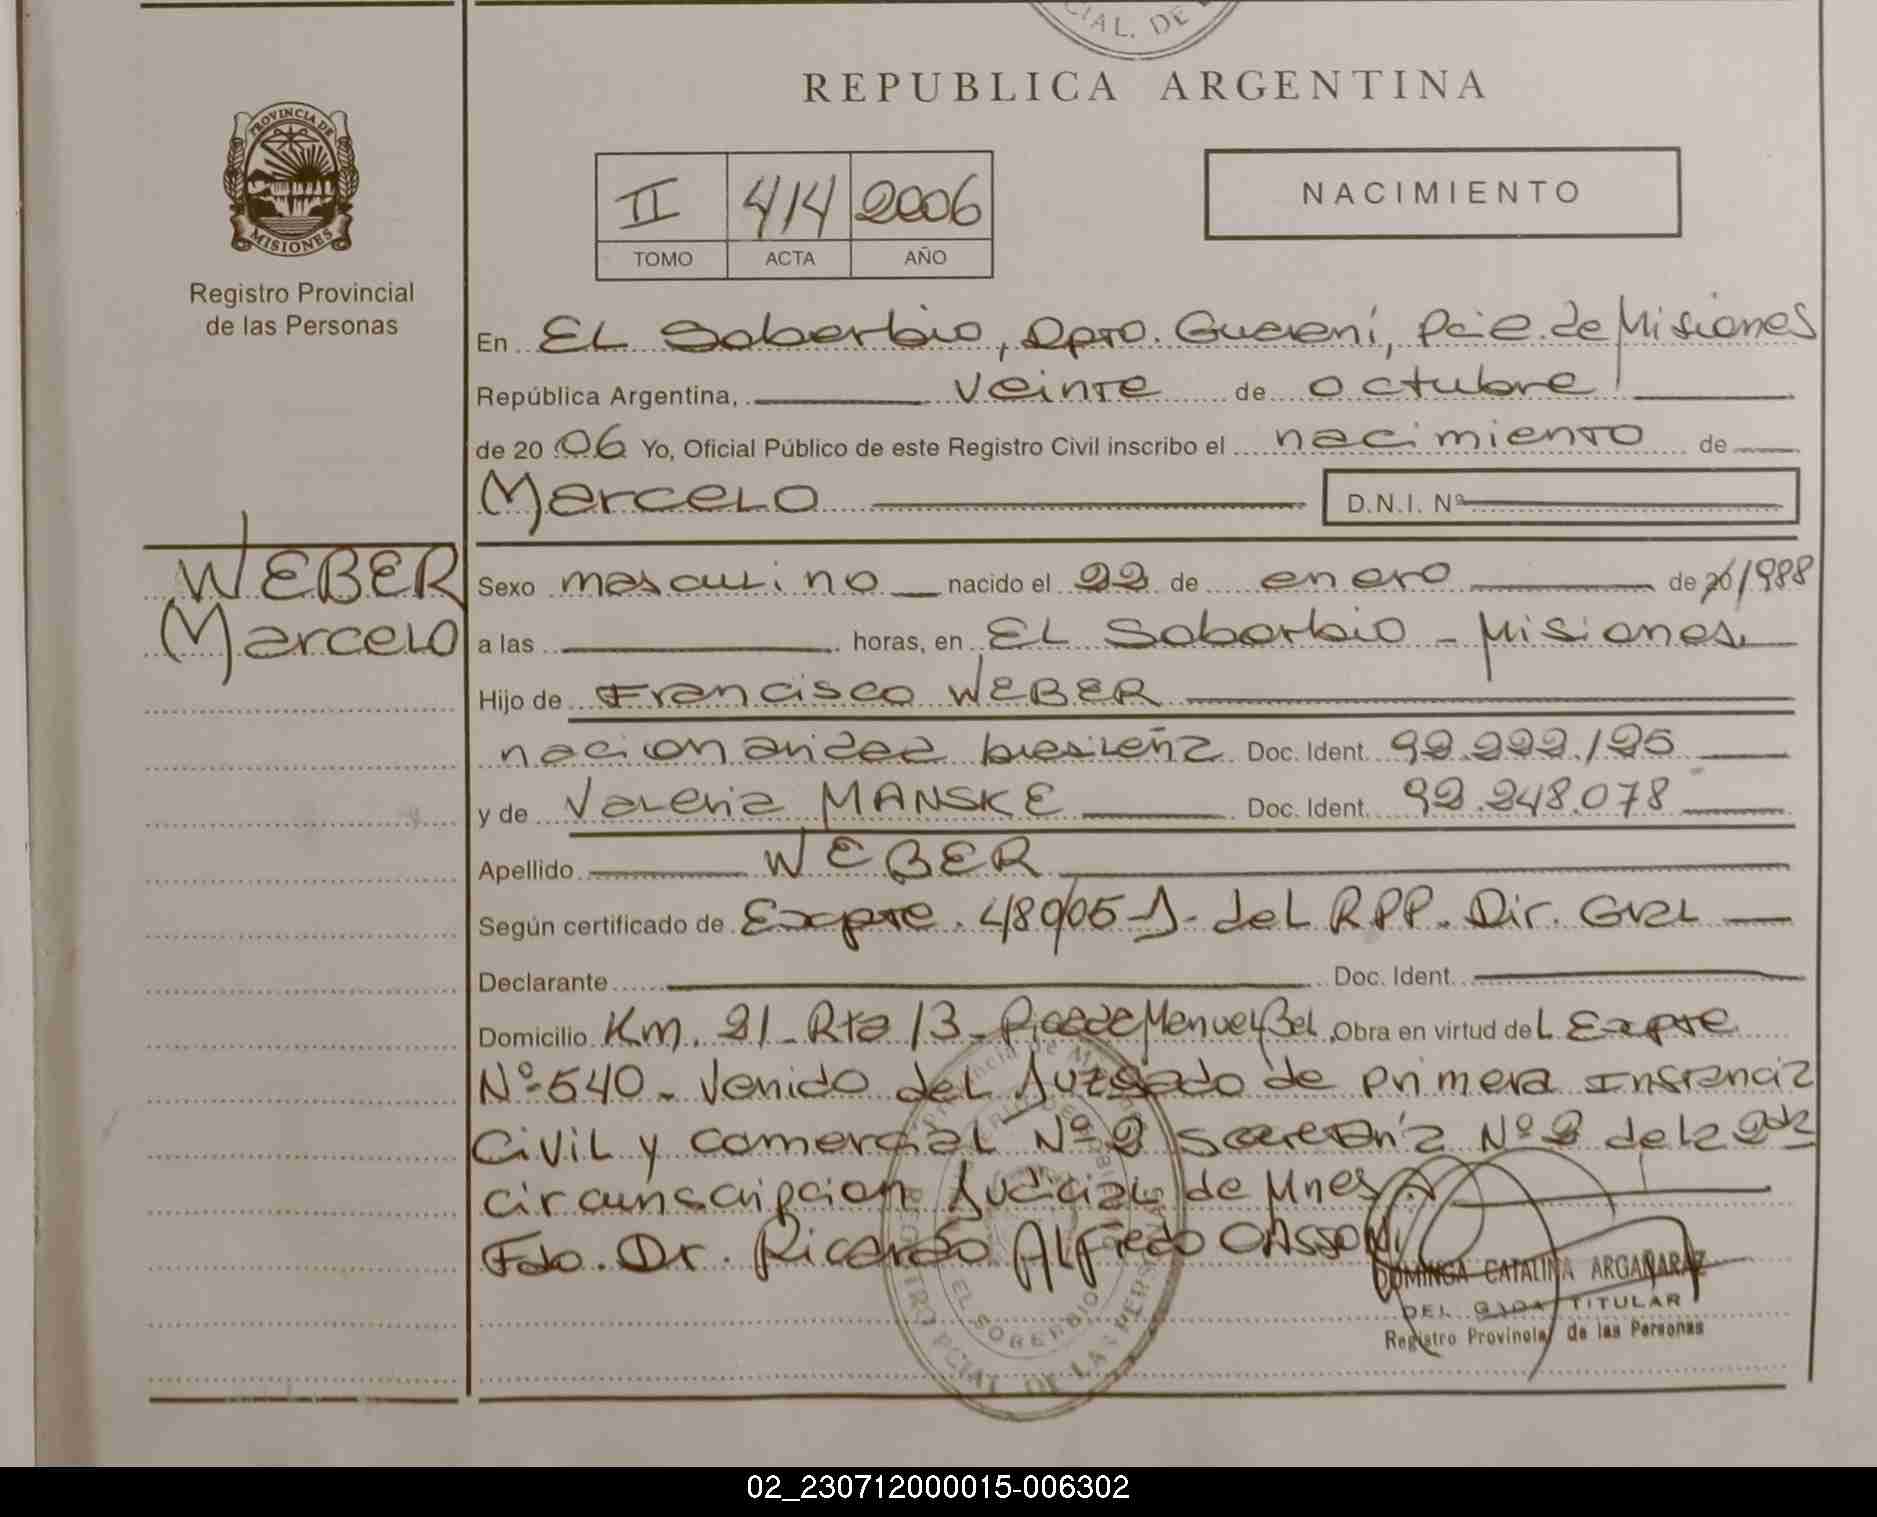 CIAL. DE
REPUBLICA ARGENTINA
PROVINCIA DE
MISIONES
Registro Provincial
de las Personas
II 414 2006
TOMO ACTA AÑO
NACIMIENTO
En EL Soberbio, Dpto. Guarani, Pcia. de Misiones
República Argentina, veinte de octubre
de 2006 Yo, Oficial Público de este Registro Civil inscribo el nacimiento de
Marcelo D.N.I. Nº
WEBER
Marcelo
Sexo masculino nacido el 22 de enero de 1988
a las horas, en EL Soberbio - Misiones
Hijo de Francisco WEBER
nacionalidad brasileña Doc. Ident. 92.222.125
y de Valeria MANSKE Doc. Ident. 92.248.078
Apellido WEBER
Según certificado de Expte. 480/05 del RPP. Dir. Gral
Declarante Doc. Ident.
Domicilio Km. 21 - Rta 13 - Picada Manuel Bel. Obra en virtud del Expte
Nº 540 - Venido del Juzgado de primera Instancia
Civil y comercial Nº 2 Secretaría Nº 2 de la 2da
circunscripcion Judicial de Mnes
Fdo. Dr. Ricardo Alfredo CASSONI
DOMINGA CATALINA ARGAÑARAZ
DEL. TITULAR
Registro Provincial de las Personas
EL SOBERBIO
PCIAL DE LAS PERS
02_230712000015-006302